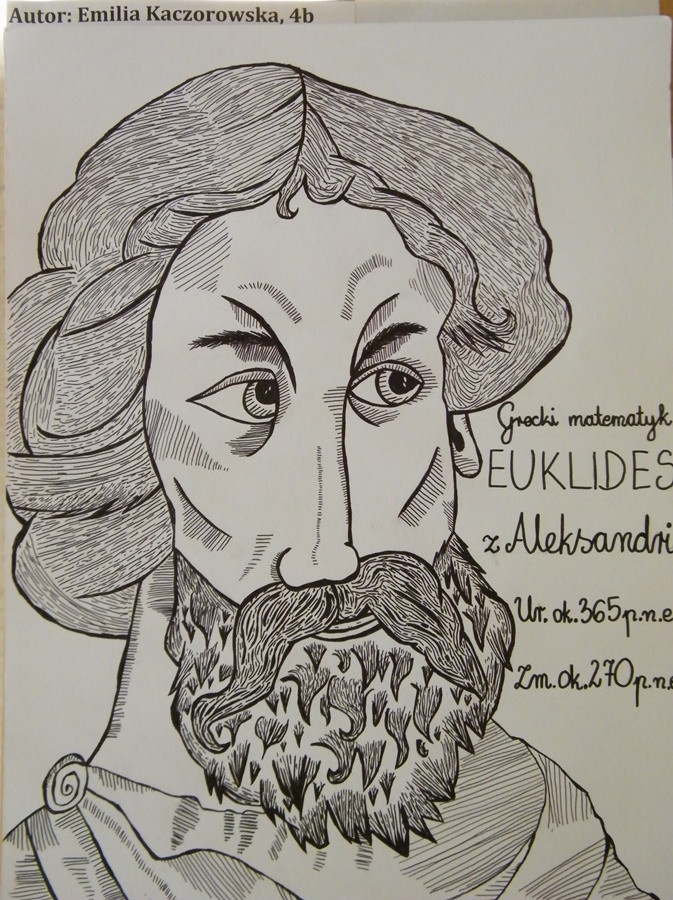 Autor: Emilia Kaczorowska, 4b
Grecki matematyk
EUKLIDES
z Aleksandri
Ur. ok. 365 p.n.e
Zm. ok. 270 p.n.e